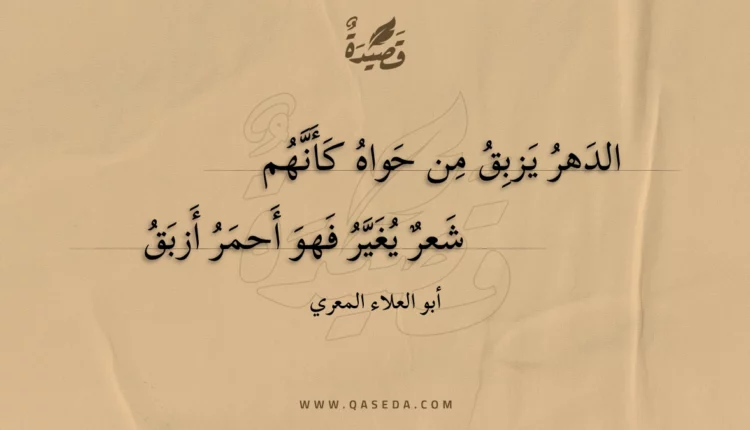 قَصِيْدَةٌ
الدَهرُ يَزبِقُ مِن حَواهُ كَأَنَّهُم
شَعرٌ يُغَيَّرُ فَهوَ أَحمَرُ أَزبَقُ
أبو العلاء المعري
WWW.QASEDA.COM